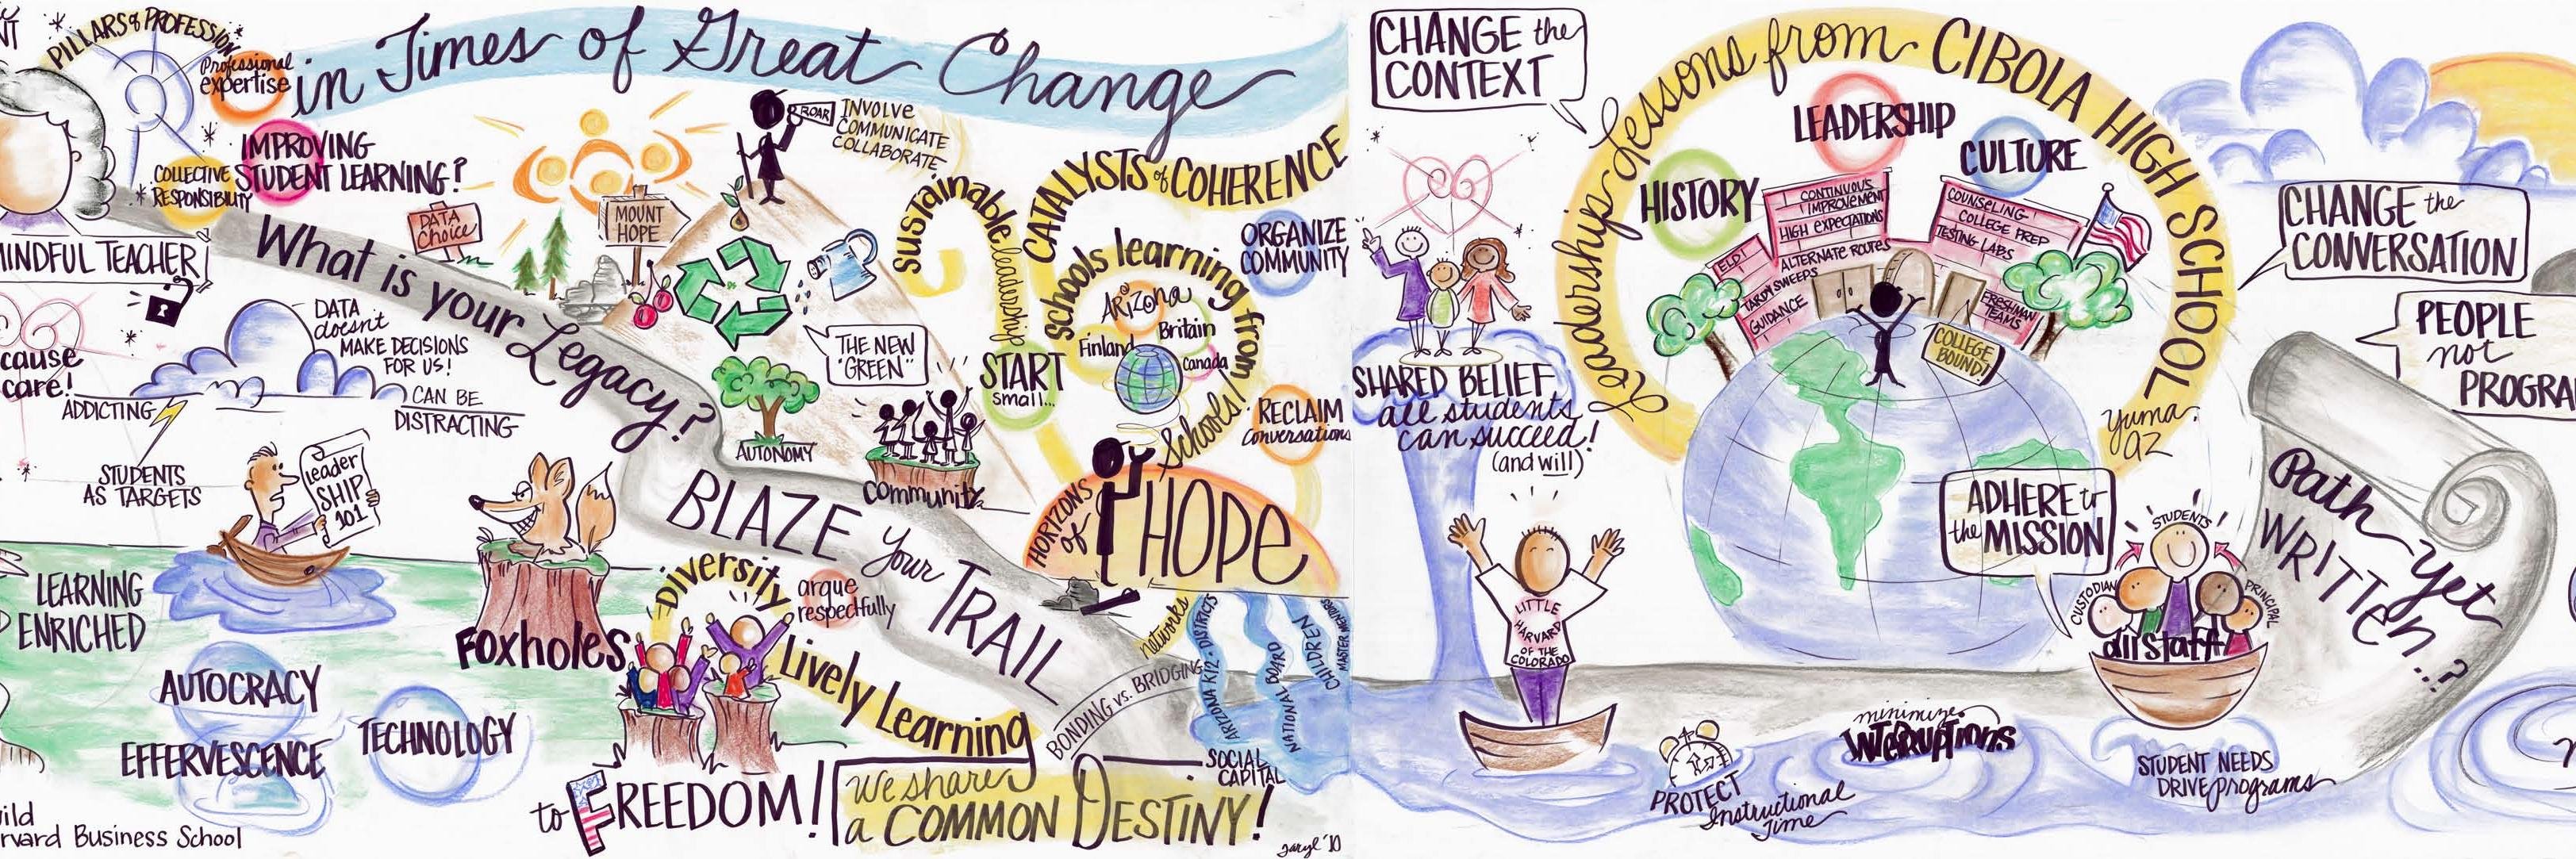 PILLARS of PROFESSION
Professional
expertise
IMPROVING
STUDENT LEARNING?
COLLECTIVE
RESPONSIBILITY
MINDFUL TEACHER
in Times of Great Change
What is your Legacy?
DATA
Choice
DATA
doesn't
MAKE DECISIONS
FOR US!
CAN BE
DISTRACTING
cause
care!
ADDICTING
STUDENTS
AS TARGETS
leader
SHIP
101
LEARNING
ENRICHED
AUTOCRACY
EFFERVESCENCE
TECHNOLOGY
Business School
MOUNT
HOPE
ROAR
INVOLVE
COMMUNICATE
COLLABORATE
THE NEW
"GREEN"
AUTONOMY
Community
BLAZE your TRAIL
Foxholes
to FREEDOM!
Diversity
argue
respectfully
Lively Learning
We share
a COMMON DESTINY!
sustainable leadership
CATALYSTS of COHERENCE
Schools learning from Schools!
Arizona
Finland
Britain
Canada
START
small...
ORGANIZE
COMMUNITY
RECLAIM
Conversations
HORIZONS
of
HOPE
networks
BONDING vs. BRIDGING
ARIZONA K12 - DISTRICTS
NATIONAL BOARD
CHILDREN
SOCIAL
CAPITAL
taryl '10
CHANGE the
CONTEXT
SHARED BELIEF
all students
can succeed!
(and will)
LITTLE
HARVARD
OF THE
COLORADO
Leadership Lessons from CIBOLA HIGH SCHOOL
Yuma,
AZ
HISTORY
LEADERSHIP
CULTURE
CONTINUOUS
IMPROVEMENT
HIGH EXPECTATIONS
ALTERNATE ROUTES
ELD!
TARDY SWEEPS
GUIDANCE
COUNSELING
COLLEGE PREP
TESTING LABS
FRESHMAN
TEAMS
COLLEGE
BOUND!
ADHERE to
the MISSION
STUDENTS
CUSTODIAN
PRINCIPAL
all staff
PROTECT
Instructional
Time
minimize
INTERRUPTIONS
STUDENT NEEDS
DRIVE programs
CHANGE the
CONVERSATION
PEOPLE
not
Path yet
WRITTEN...?